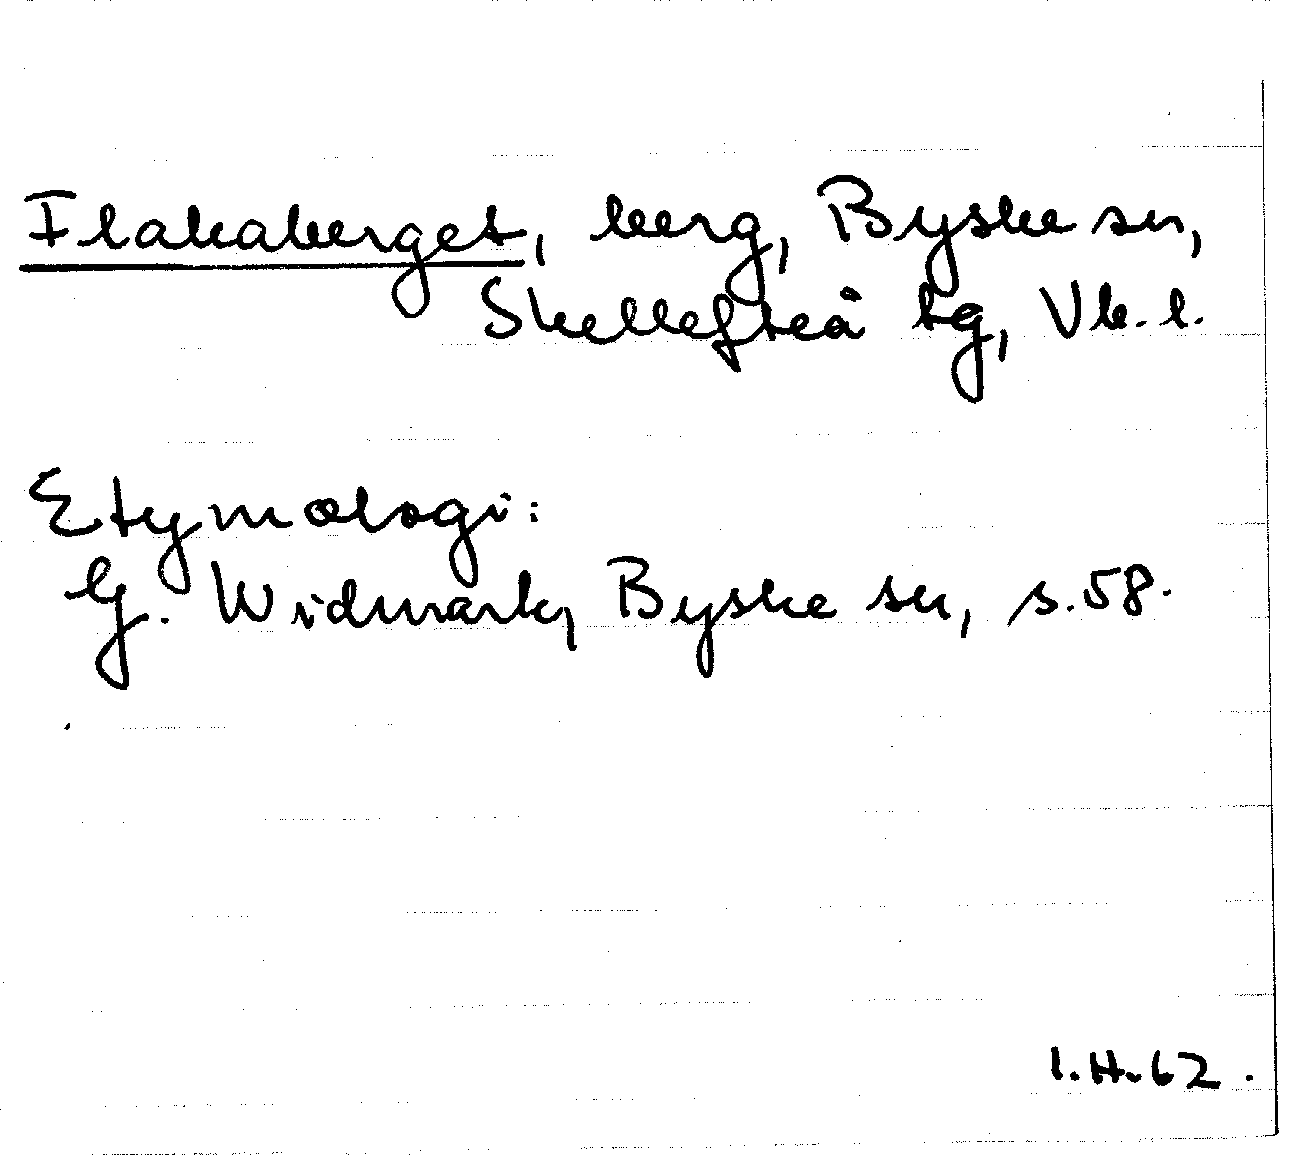 Flakaberget, berg, Byske sn,
Skellefteå tg, Vb. l.
Etymologi:
G. Widmark, Byske sn, s. 58.
I.H. 62.